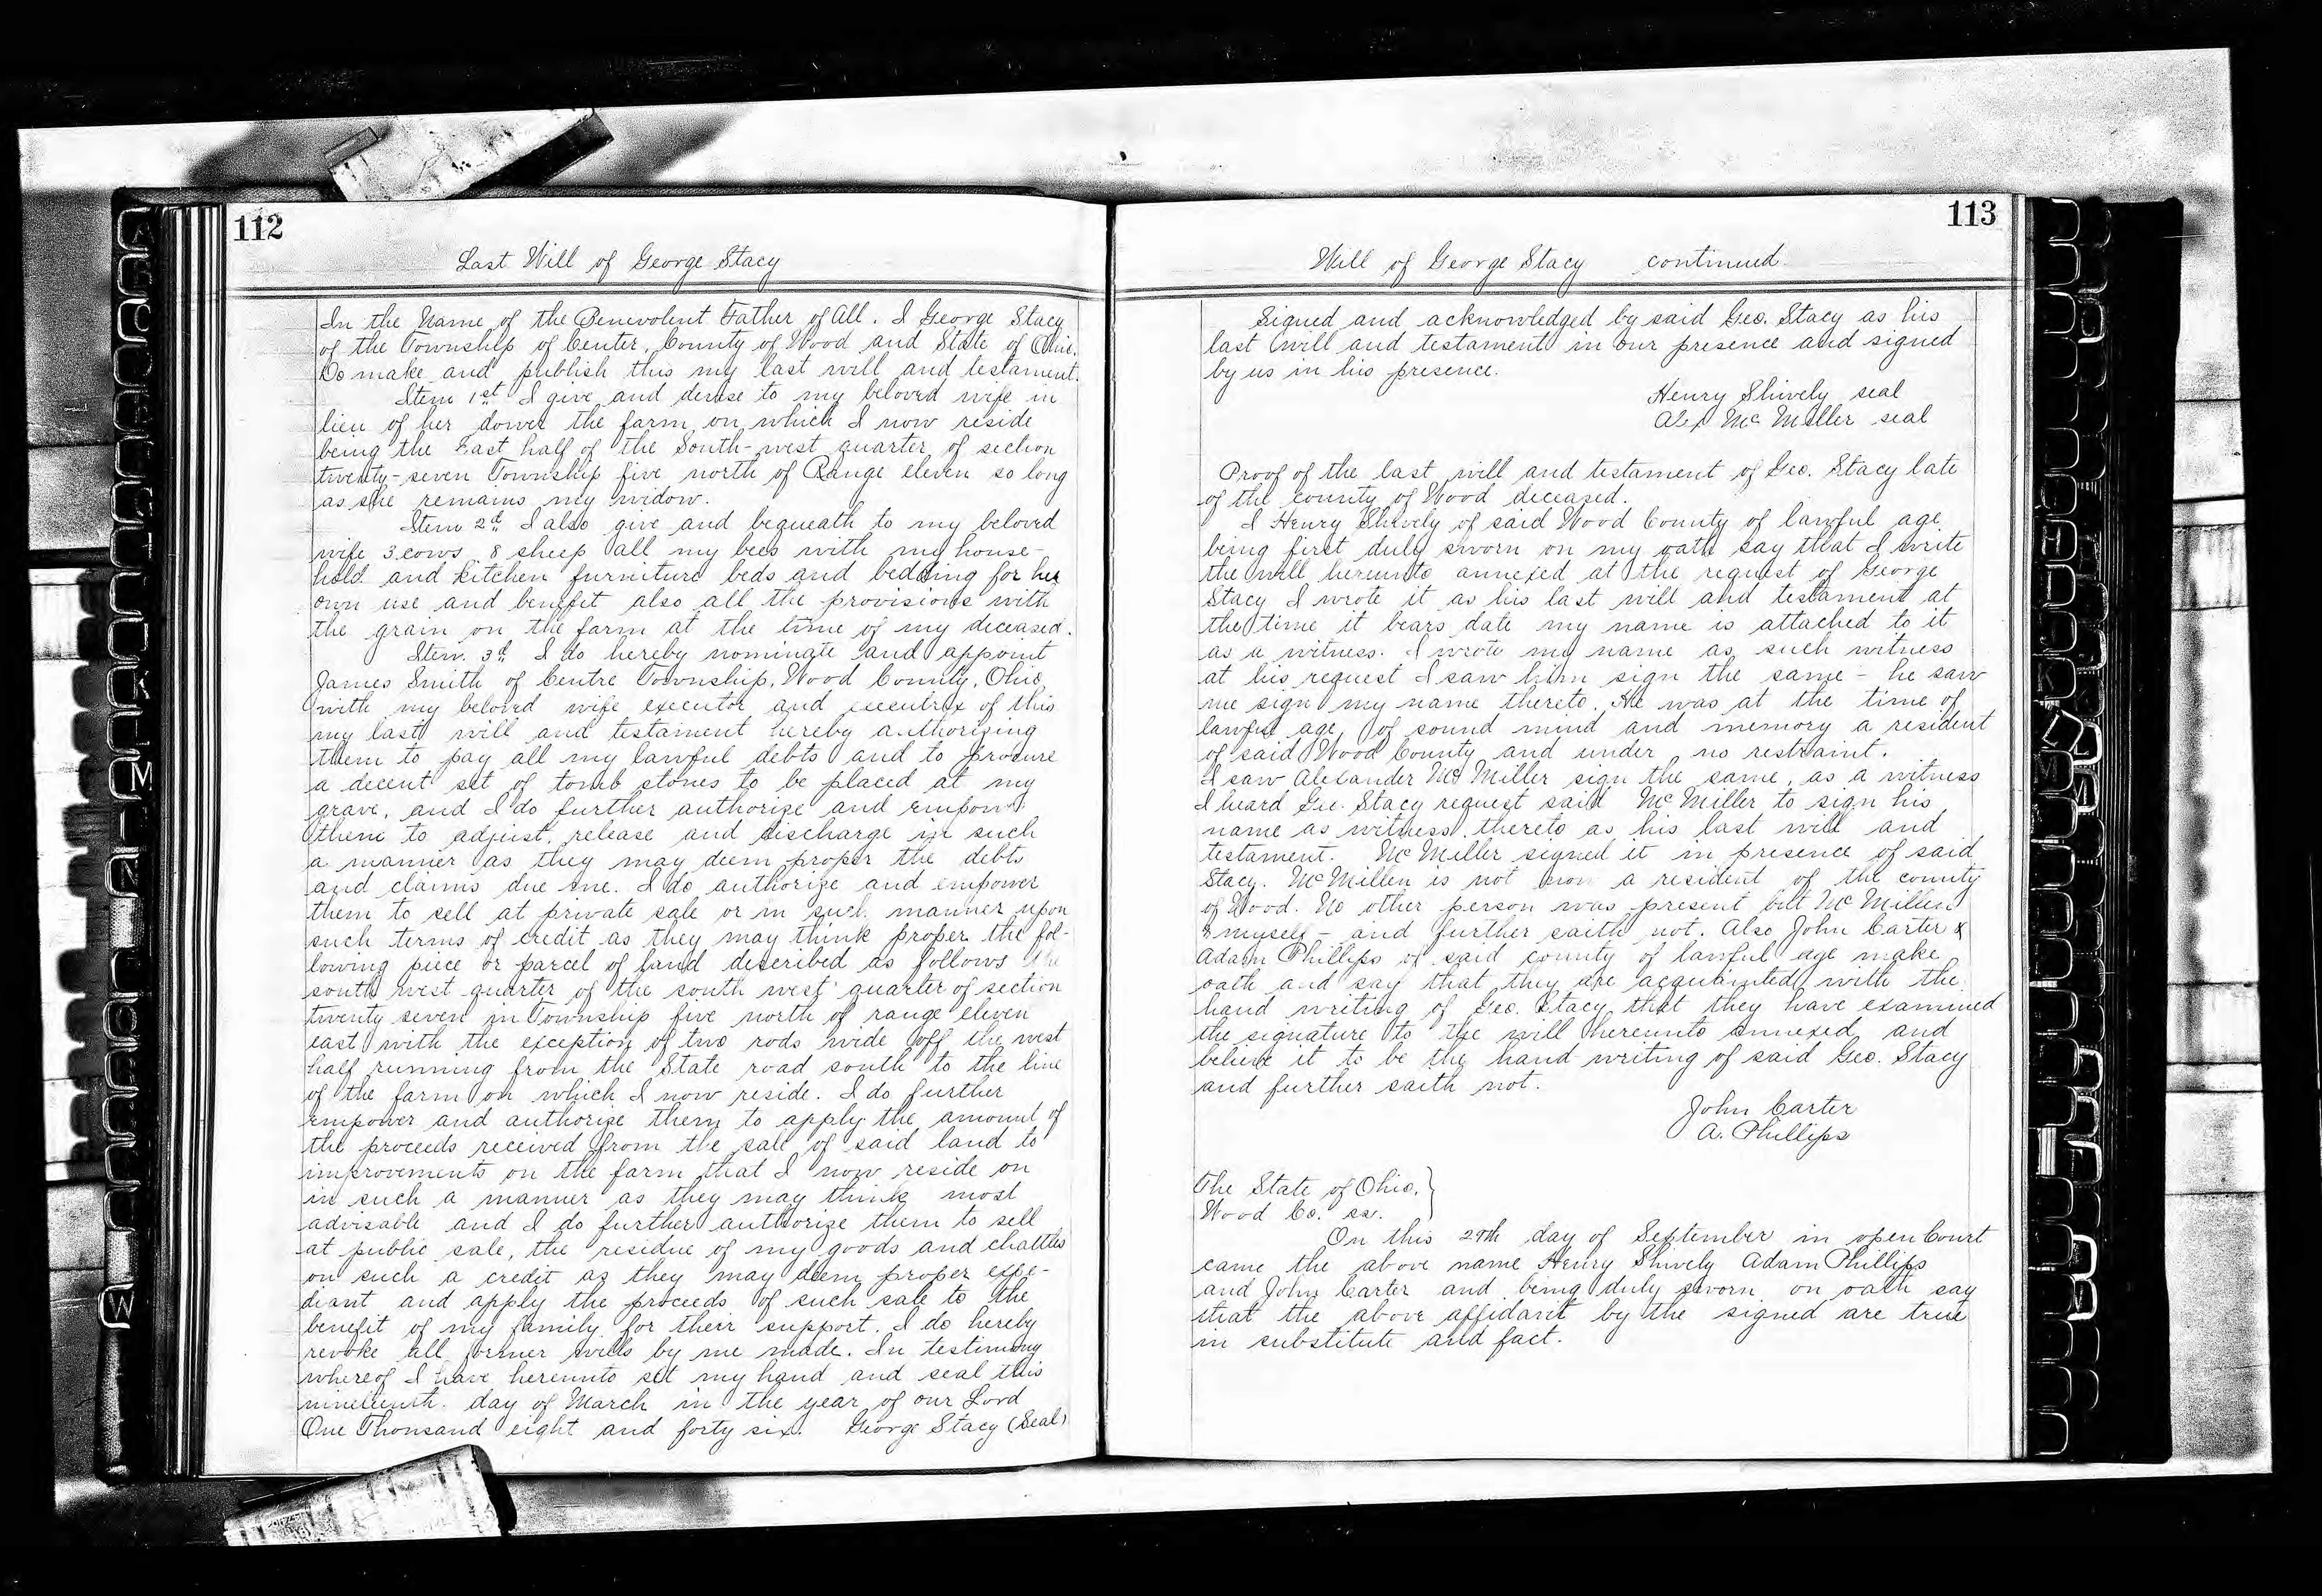 112
Last Will of George Stacy
In the Name of the Benevolent Father of All. I George Stacy
of the Township of Center, County of Wood and State of Ohio.
Do make and publish this my last will and testament.
Item 1st I give and devise to my beloved wife in
lieu of her dower the farm on which I now reside
being the East half of the South-west quarter of section
twenty-seven Township five north of Range eleven so long
as she remains my widow.
Item 2d I also give and bequeath to my beloved
wife 3 cows 8 sheep all my bees with my house-
hold and kitchen furniture beds and bedding for her
own use and benefit also all the provisions with
the grain on the farm at the time of my deceased.
Item. 3d I do hereby nominate and appoint
James Smith of Centre Township, Wood County, Ohio
with my beloved wife executor and executrix of this
my last will and testament hereby authorizing
them to pay all my lawful debts and to procure
a decent set of tomb stones to be placed at my
grave, and I do further authorize and empower
them to adjust, release and discharge in such
a manner as they may deem proper the debts
and claims due me. I do authorize and empower
them to sell at private sale or in such manner upon
such terms of credit as they may think proper the fol-
lowing piece or parcel of land described as follows the
south west quarter of the south west quarter of section
twenty seven in Township five north of range eleven
east with the exception of two rods wide off the west
half running from the State road south to the line
of the farm on which I now reside. I do further
empower and authorize them to apply the amount of
the proceeds received from the sale of said land to
improvements on the farm that I now reside on
in such a manner as they may think most
advisable and I do further authorize them to sell
at public sale, the residue of my goods and chattles
on such a credit as they may deem proper expe-
diant and apply the proceeds of such sale to the
benefit of my family for their support. I do hereby
revoke all former wills by me made. In testimony
whereof I have hereunto set my hand and seal this
nineteenth day of March in the year of our Lord
One Thousand eight and forty six. George Stacy (Seal)
113
Will of George Stacy continued
Signed and acknowledged by said Geo. Stacy as his
last will and testament in our presence and signed
by us in his presence.
Henry Shively seal
Alex Mc Miller seal
Proof of the last will and testament of Geo. Stacy late
of the county of Wood deceased.
I Henry Shively of said Wood County of lawful age
being first duly sworn on my oath say that I write
the will hereunto annexed at the request of George
Stacy I wrote it as his last will and testament at
the time it bears date my name is attached to it
as a witness. I wrote my name as such witness
at his request I saw him sign the same - he saw
me sign my name thereto. He was at the time of
lawful age, of sound mind and memory a resident
of said Wood County and under no restraint.
I saw Alexander Mc Miller sign the same, as a witness
I heard Geo. Stacy request said Mc Miller to sign his
name as witness thereto as his last will and
testament. Mc Miller signed it in presence of said
Stacy. Mc Millen is not now a resident of the county
of Wood. No other person was present but Mc Millen
& myself - and further saith not. Also John Carter &
Adam Phillips of said county of lawful age make
oath and say that they are acquainted with the
hand writing of Geo. Stacy that they have examined
the signature to the will hereunto annexed and
believe it to be the hand writing of said Geo. Stacy
and further saith not.
John Carter
A. Phillips
The State of Ohio, }
Wood Co. ss.
On this 29th day of September in open Court
came the above name Henry Shively Adam Phillips
and John Carter and being duly sworn on oath say
that the above affidavit by the signed are true
in substitute and fact.